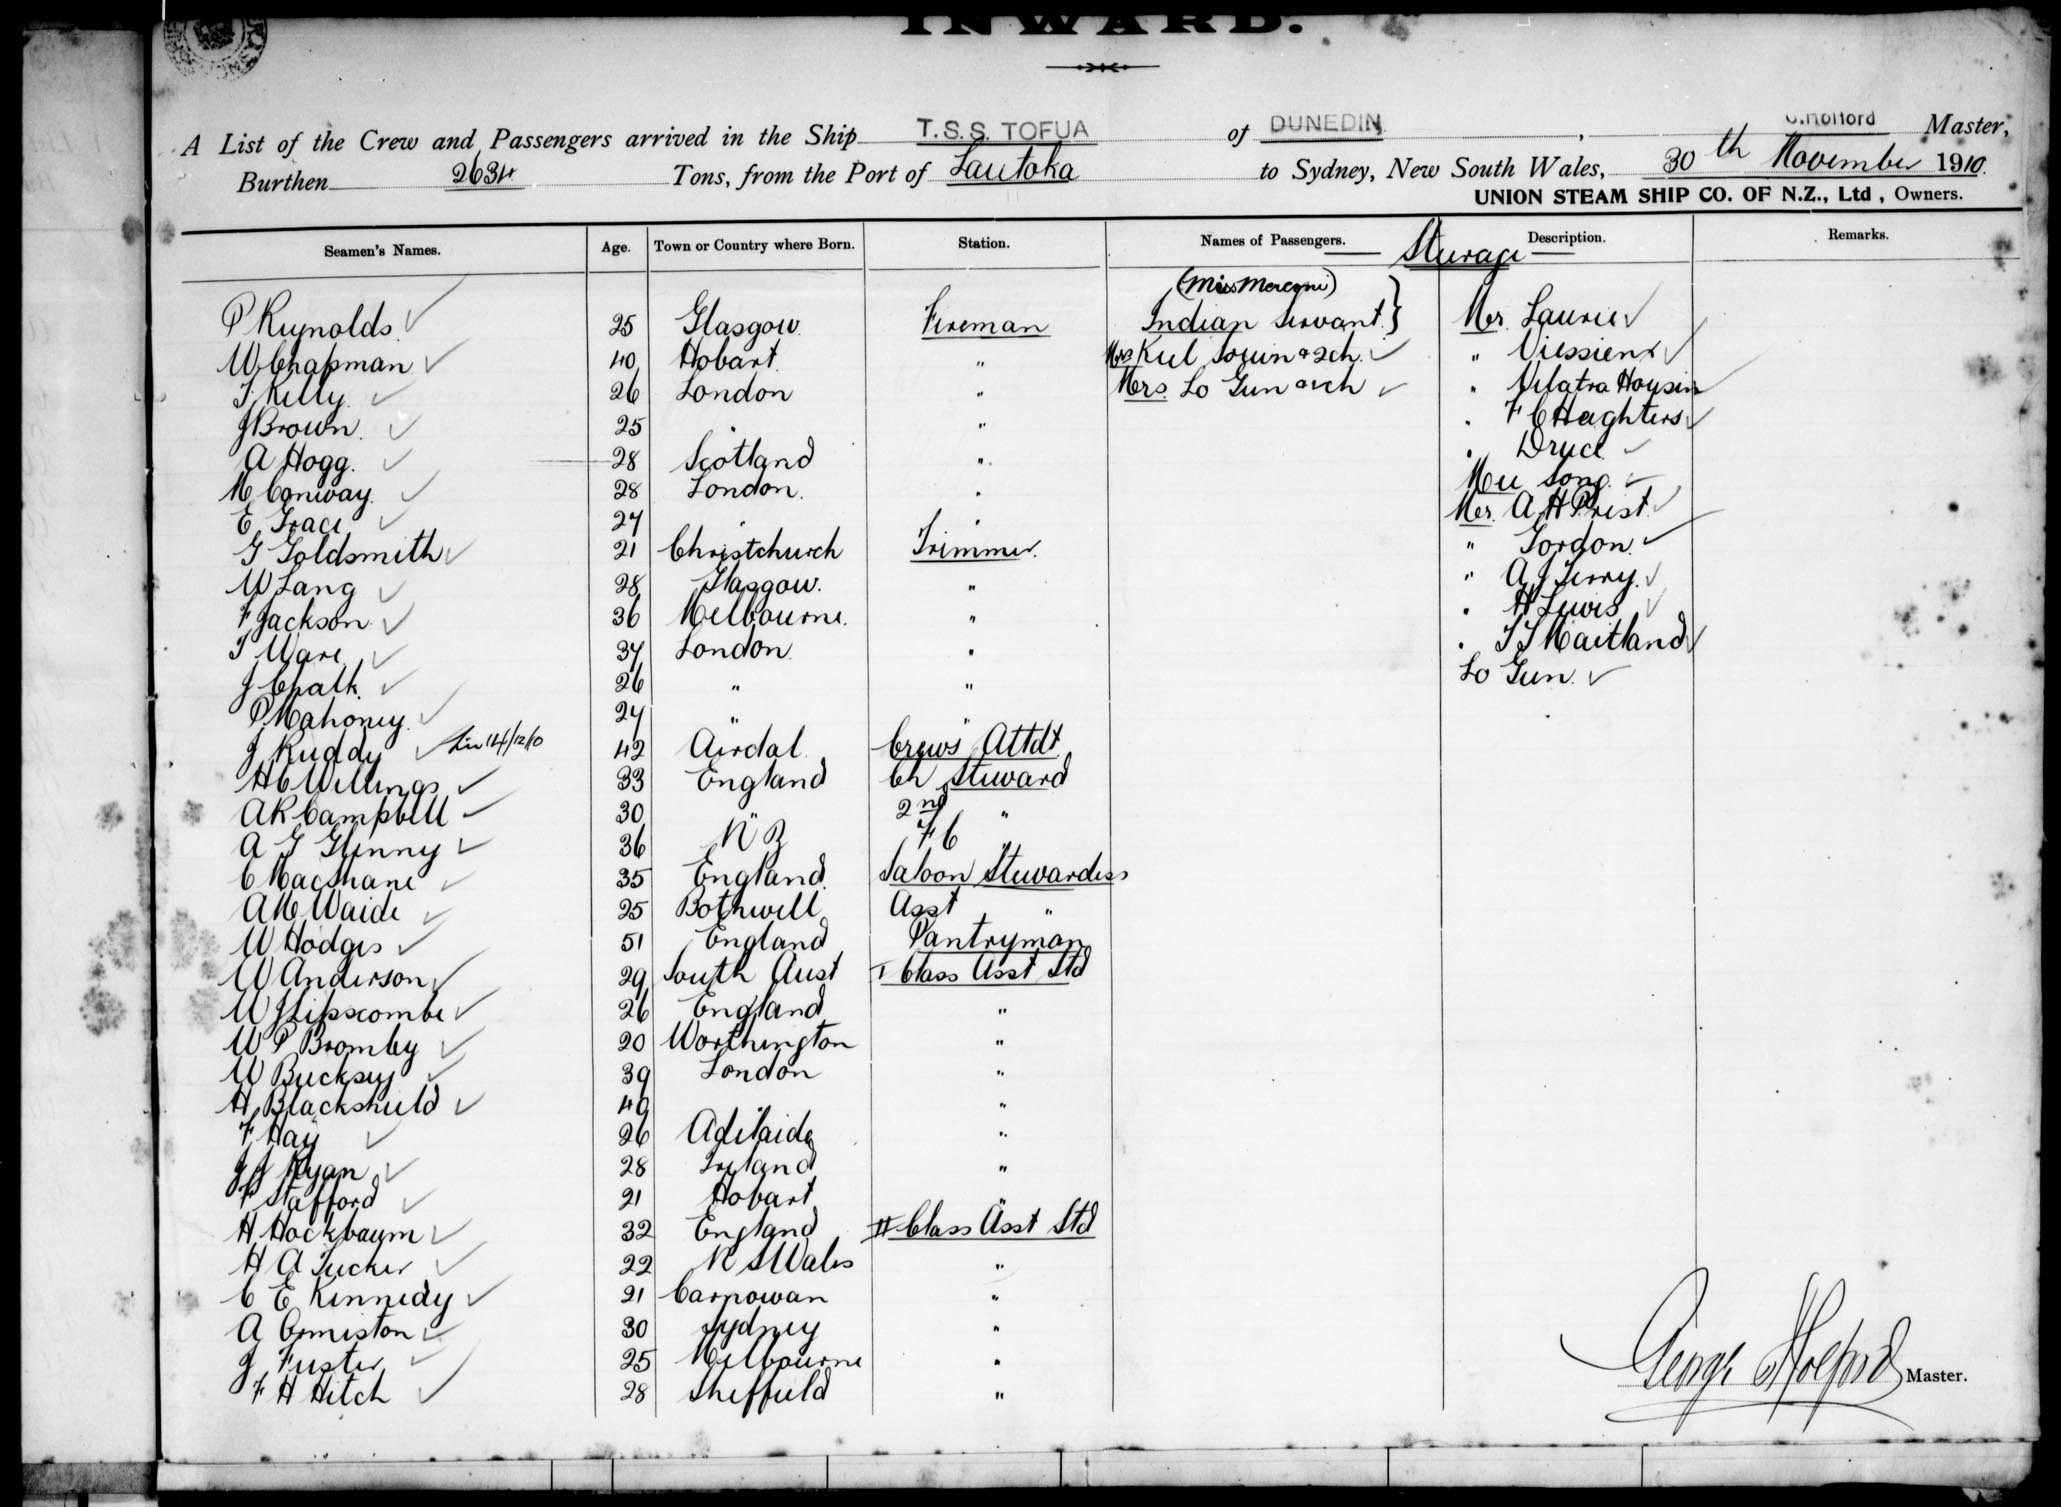 INWARD.
A List of the Crew and Passengers arrived in the Ship T.S.S. TOFUA of DUNEDIN, G. Holford Master,
Burthen 2634 Tons, from the Port of Lautoka to Sydney, New South Wales, 30th November 1910.
UNION STEAM SHIP CO. OF N.Z., Ltd, Owners.
Seamen's Names. Age. Town or Country where Born. Station. Names of Passengers. Description. Remarks.
Steerage
(Miss )
P Reynolds 25 Glasgow Fireman Indian Servant } Mr. Laurie
W Chapman 40 Hobart " Mrs & 2 ch. "
T Kelly 26 London " Mrs. Lo Gun & ch "
J Brown 25 " " "
A Hogg. 28 Scotland " " Druce
M Conway 28 London. " Song
E Grace 24 " " Mr. A H Priest
G Goldsmith 21 Christchurch Trimmer " Gordon
W Lang 28 Glasgow. " " A J Terry
F Jackson 36 Melbourne. " " H Lewis
T Ware 34 London " " Maitland
J Chalk. 26 " " Lo Gun.
P Mahoney. 24 " "
J Ruddy 14/12/10 42 Airdal Crews Attdt
H C Willings 33 England Ch Steward
A R Campbell 30 " 2nd "
A G Glenny 36 N Z F C
C MacShane 35 England Saloon Stewardess
A M Waide 25 Bothwell Asst "
W Hodges 51 England Pantryman
W Anderson 29 South Aust I Class Asst Std
W J Lipscombe 26 England "
W P Bromby 20 Worthington "
W Bucksey 39 London "
H Blackshield 49 " "
F Hay 26 Adelaide "
J J Ryan 28 Ireland "
F Stafford 21 Hobart "
H Hockbaum 32 England II Class Asst Std
H A Tucker 22 N S Wales "
C E Kennedy 21 "
A Ormiston 30 Sydney "
J Fuster 25 Melbourne "
F H Hitch 28 Sheffield "
George Holford Master.